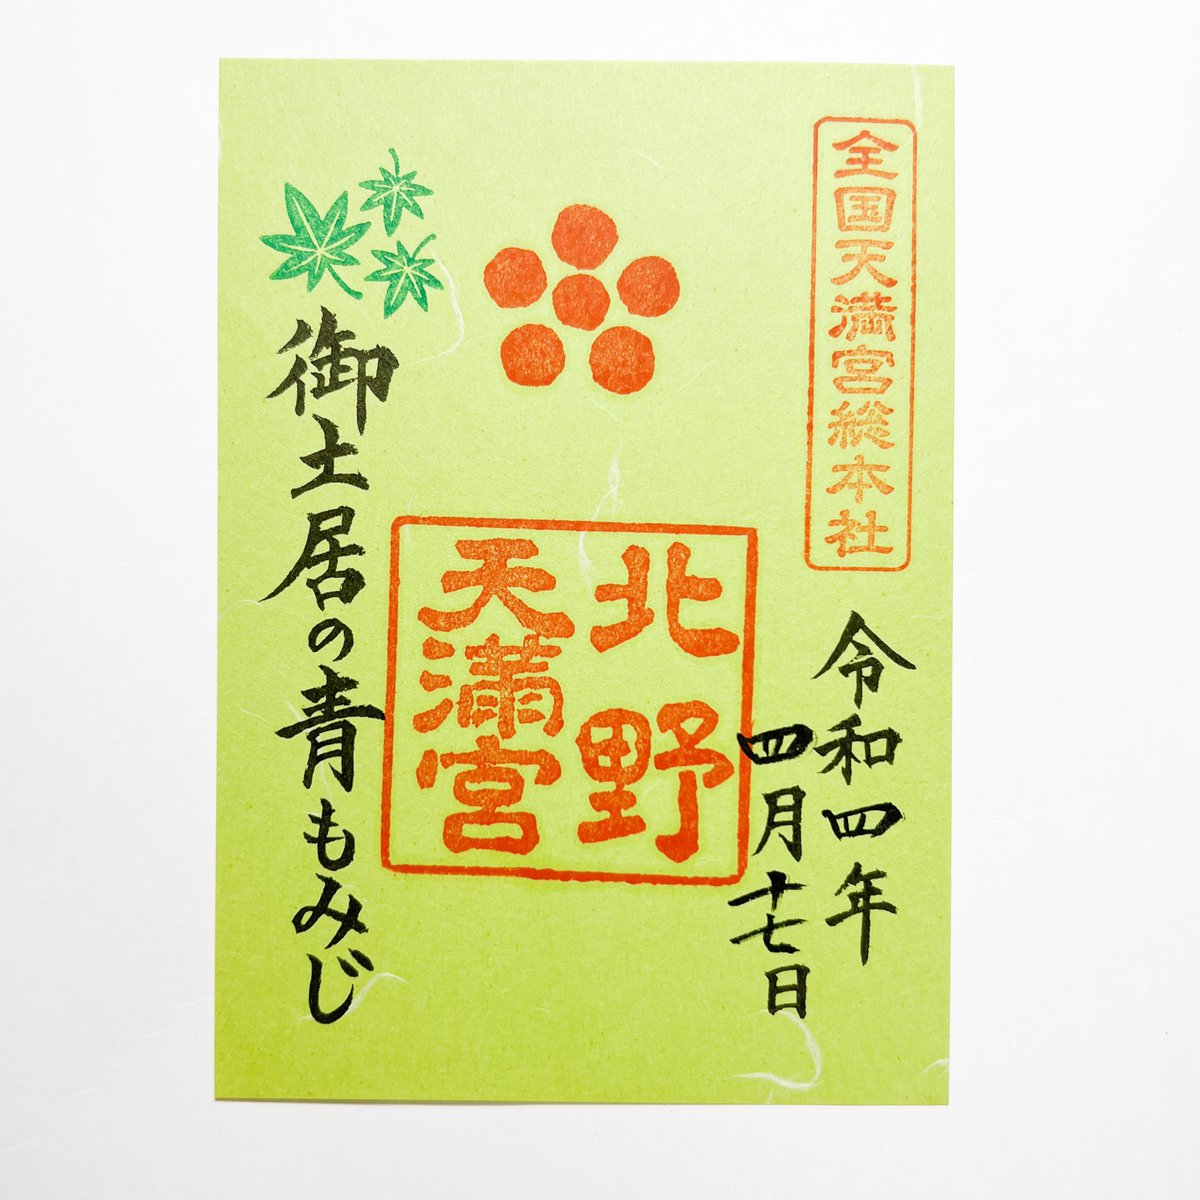 全国天満宮総本社
令和四年
四月十七日
北野
天満宮
御土居の青もみじ